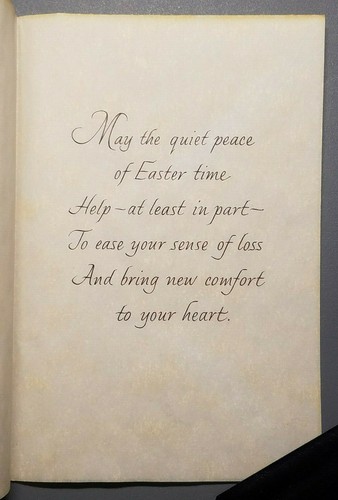 May the quiet peace
of Easter time
Help–at least in part–
To ease your sense of loss
And bring new comfort
to your heart.